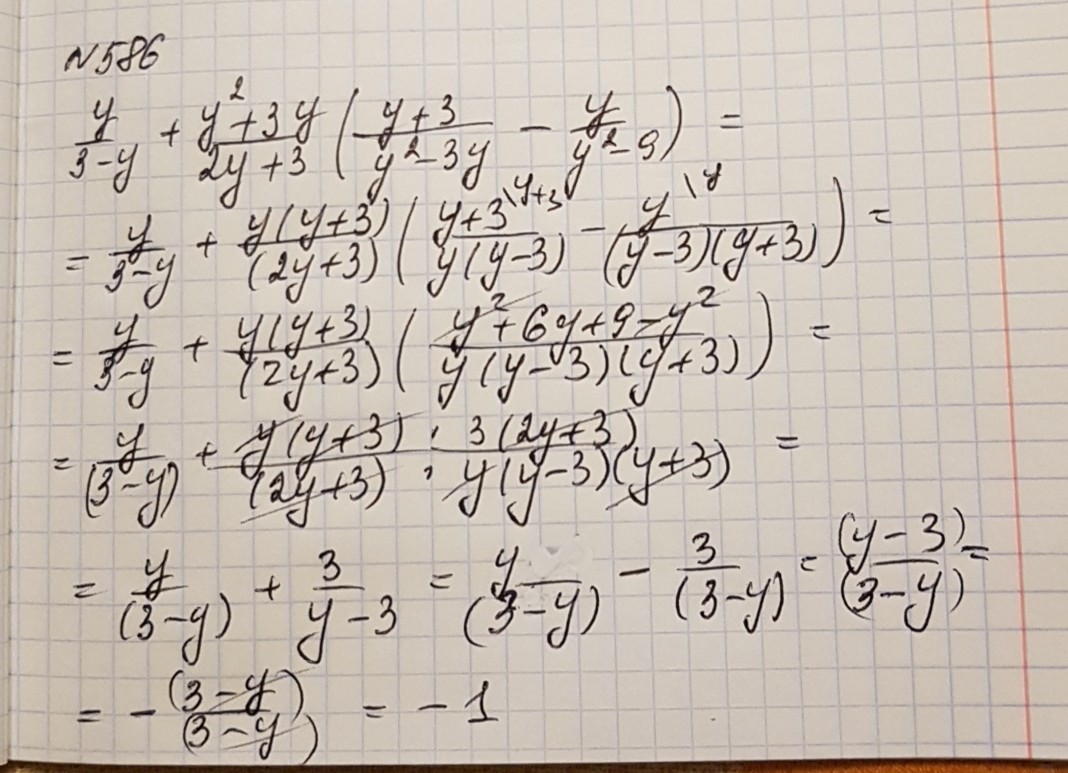 N586
y/(3-y) + (y²+3y)/(2y+3) ((y+3)/(y²-3y) - y/(y²-9)) =
= y/(3-y) + y(y+3)/(2y+3) ((y+3)\y+3/(y(y-3)) - y\y/((y-3)(y+3))) =
= y/(3-y) + y(y+3)/(2y+3) ((y²+6y+9-y²)/(y(y-3)(y+3))) =
= y/(3-y) + y(y+3)/(2y+3) : 3(2y+3)/(y(y-3)(y+3)) =
= y/(3-y) + 3/(y-3) = y/(3-y) - 3/(3-y) = (y-3)/(3-y) =
= - (3-y)/(3-y) = - 1